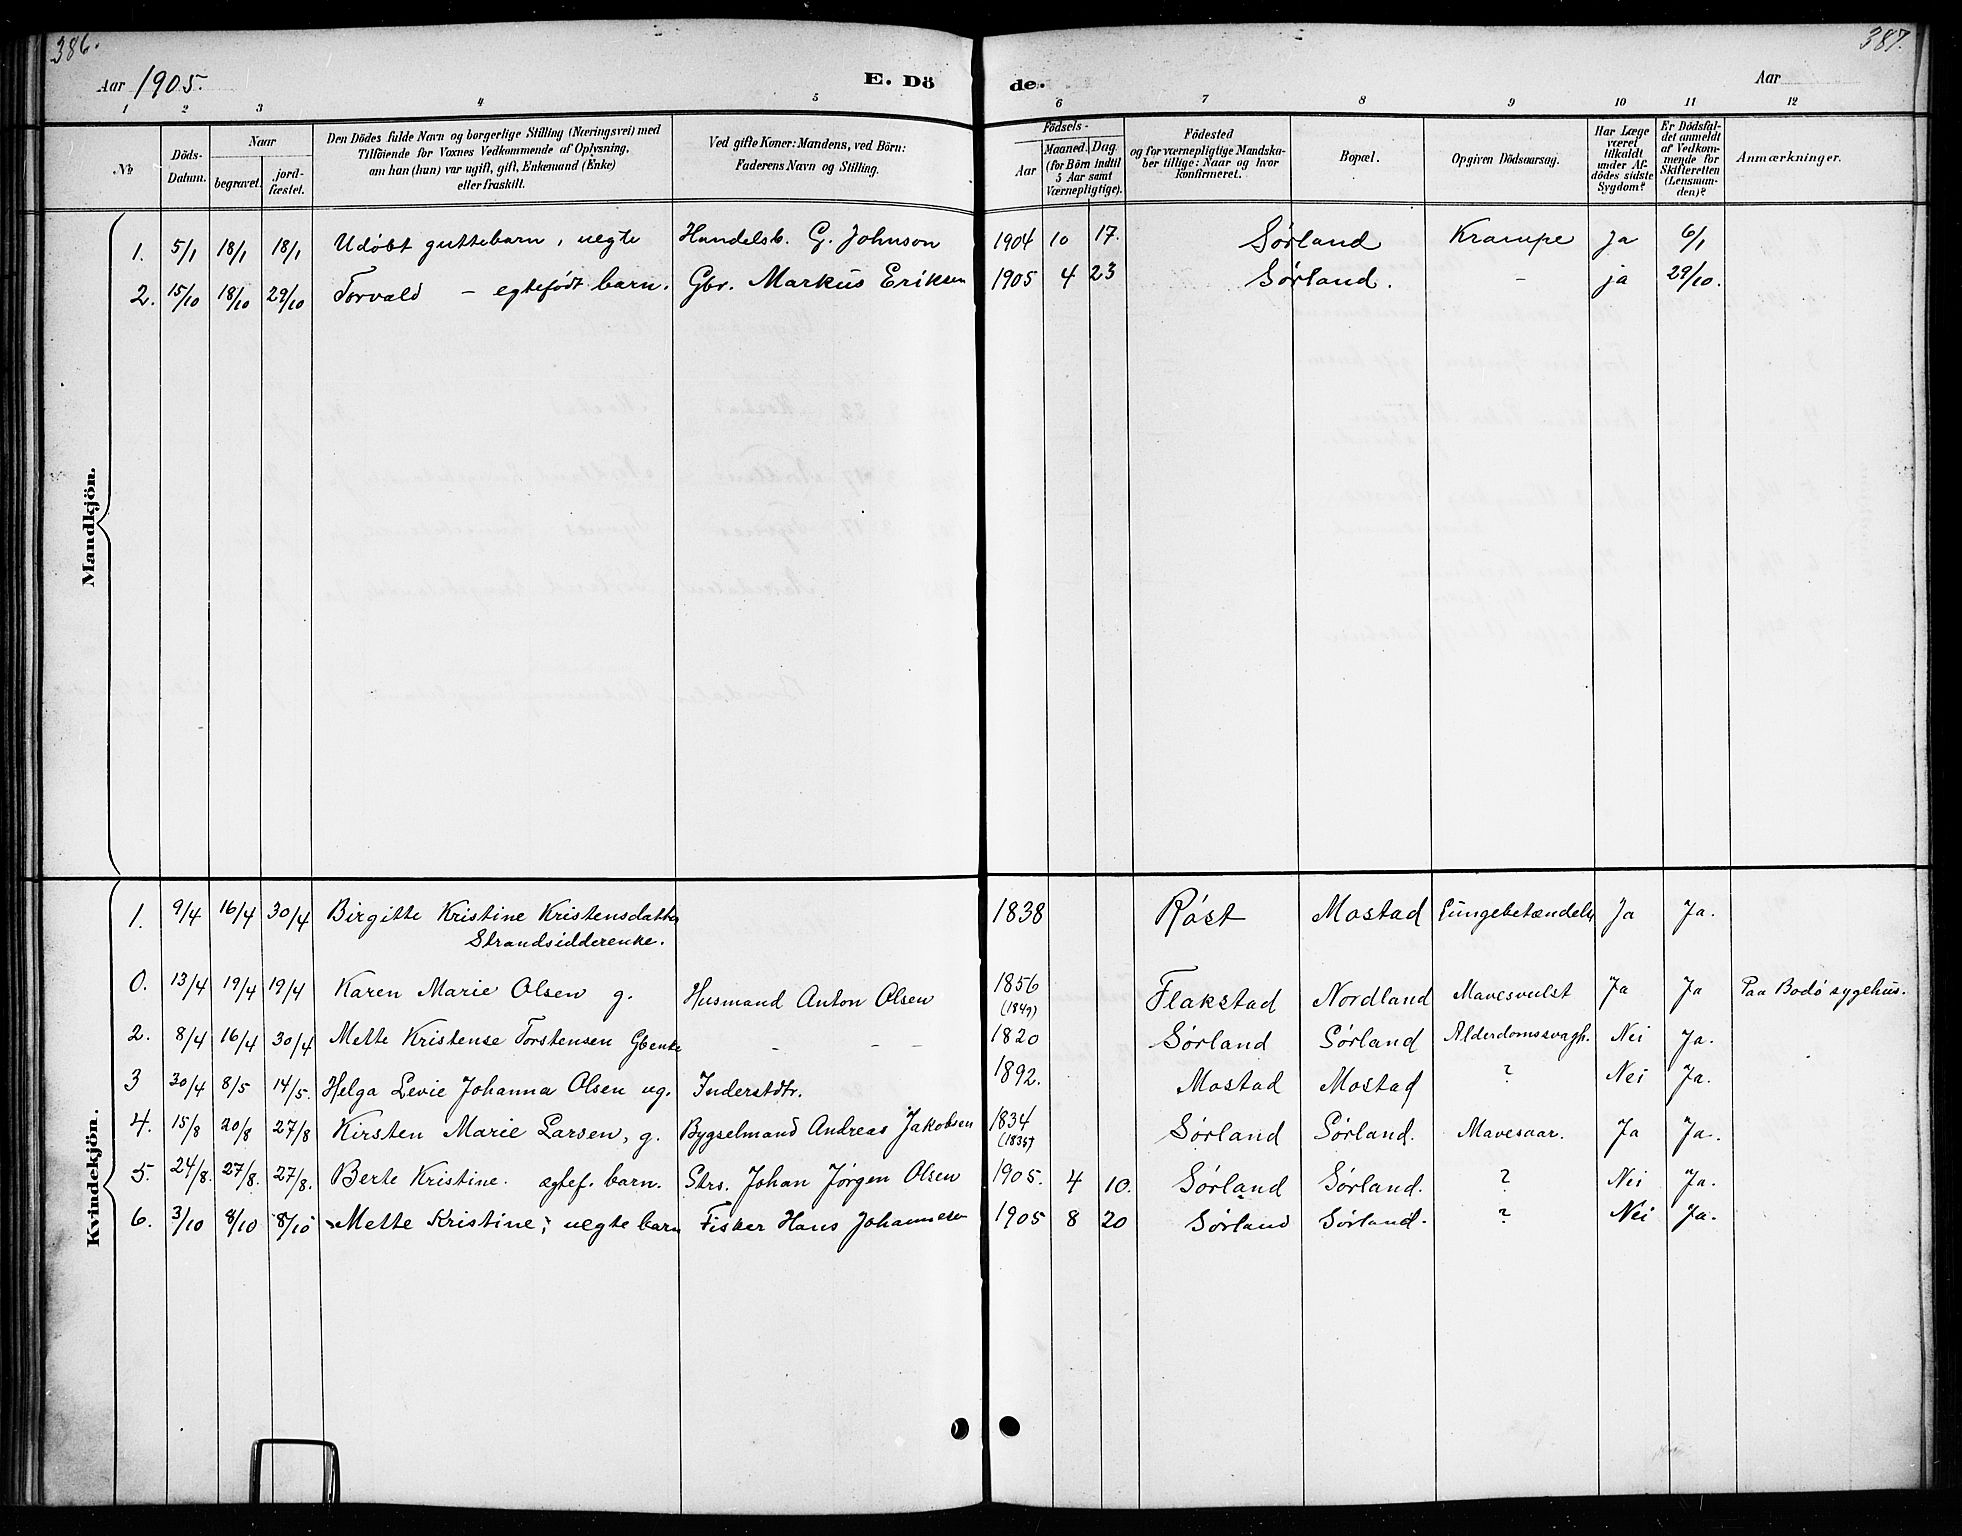 386.
387.
Aar 1905.
E. Dö
de.
Aar
1 2 3 4 5 6 7 8 9 10 11 12
No
Döds-Datum.
Naar
begravet.
jordfæstet.
Den Dödes fulde Navn og borgerlige Stilling (Næringsvei) med
Tilföiende for Voxnes Vedkommende af Oplysning,
om han (hun) var ugift, gift, Enkemand (Enke)
eller fraskilt.
Ved gifte Koner: Mandens, ved Börn:
Faderens Navn og Stilling.
Födsels-
Aar
Maaned. Dag.
(for Börn indtil
5 Aar samt
Værnepligtige).
Födested
og for værnepligtige Mandska-
ber tillige: Naar og hvor
konfirmeret.
Bopæl.
Opgiven Dödsaarsag.
Har Læge
været
tilkaldt
under Af-
dödes sidste
Sygdom?
Er Dödsfal-
det anmeldt
af Vedkom-
mende for
Skifteretten
(Lensman-
den)?
Anmærkninger.
Mandkjön.
1. 5/1 18/1 18/1 Udøbt guttebarn, uegte Handelsb. G. Johnson 1904 10 17. Sørland Krampe Ja 6/1
2. 15/10 18/10 29/10 Torvald – egtefødt barn. Gbr. Markus Eriksen 1905 4 23 Sørland. – ja 29/10.
Kvindekjön.
1. 9/4 16/4 30/4 Birgitte Kristine Kristensdatter 1838 Røst Mostad Lungebetændelse Ja Ja.
Strandsidderenke.
0. 13/4 19/4 19/4 Karen Marie Olsen g. Husmand Anton Olsen 1856 Flakstad Nordland Mavesvulst Ja Ja Paa Bodø sygehus.
(1849)
2. 8/4 16/4 30/4 Mette Kristense Torstensen Gbenke – – – 1820 Sørland Sørland Alderdomssvagh. Nei Ja.
3 30/4 8/5 14/5. Helga Levie Johanna Olsen ug. Inderstdtr. 1892. Mostad Mostad ? Nei Ja.
4. 15/8 20/8 27/8 Kirsten Marie Larsen, g. Bygselmand Andreas Jakobsen 1834 Sørland Sørland. Mavesaar. Ja Ja.
(1835)
5. 24/8. 27/8. 27/8. Berte Kristine. ægtef. barn. Strs. Johan Jørgen Olsen 1905. 4 10. Sørland Sørland. ? Nei Ja.
6. 3/10 8/10 8/10 Mette Kristine, uegte barn Fisker Hans Johannesen 1905 8 20 Sørland Sørland. ? Nei Ja.